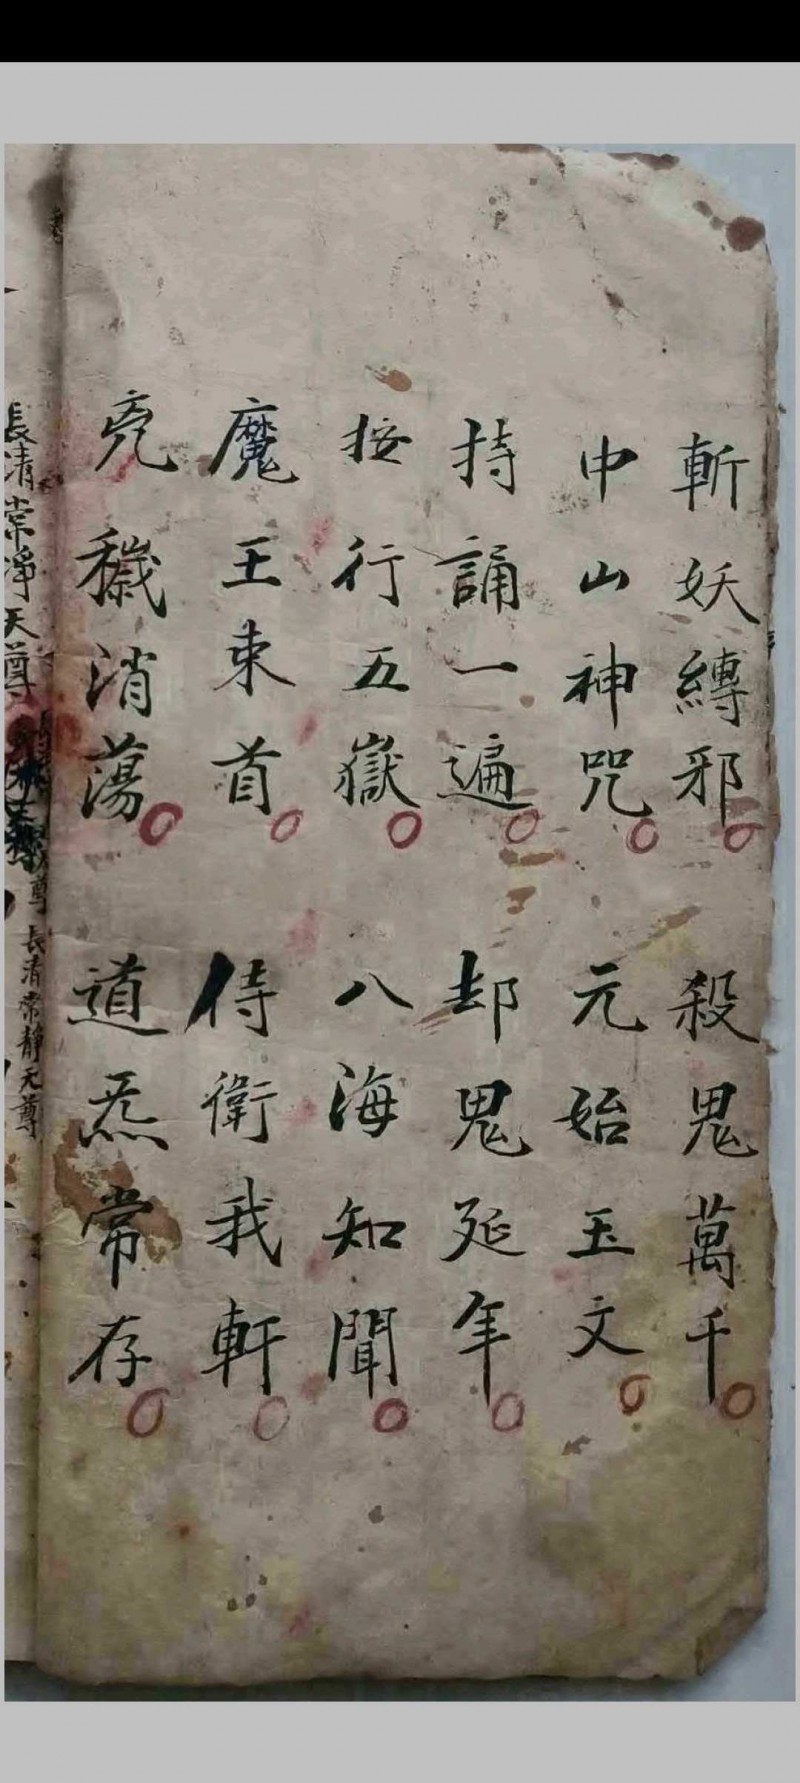 斬妖縛邪 殺鬼萬千
中山神咒 元始玉文
持誦一遍 却鬼延年
按行五嶽 八海知聞
魔王束首 侍衛我軒
穢消蕩 道炁常存
長清常淨天尊
長清常靜天尊